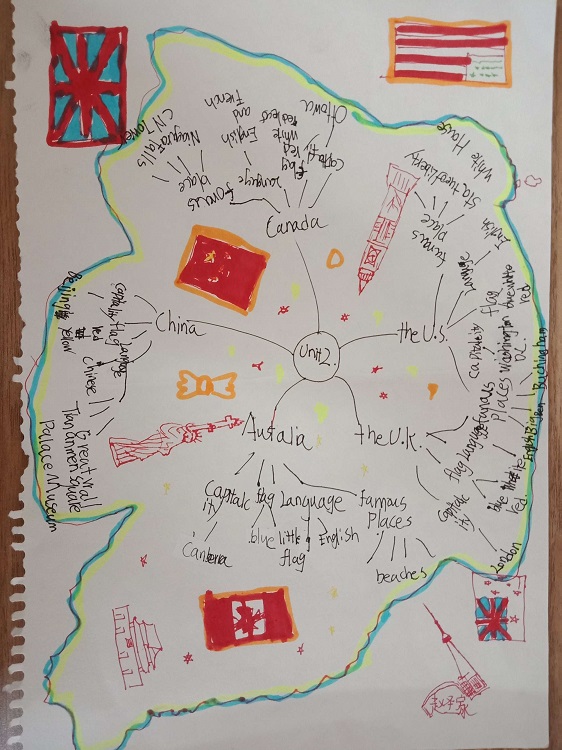 Unit2.
Canada
capital city
Ottowa
flag
red
white
red leaf
language
English
and
French
famous
place
Niagara Falls
CN Tower
the U.S.
famous
place
Statue of liberty
White House
Language
English
flag
red
capital city
Washington
D.C.
the U.K.
famous
places
Big
Ben
Language
English
flag
blue
white
red
capital
city
London
Autalia
capital
city
flag
blue little
flag
Language
English
famous
places
beaches
China
capital city
Beijing
flag
red
yellow
Language
Chinese
Great Wall
Tian'anmen Square
Pallace Museum